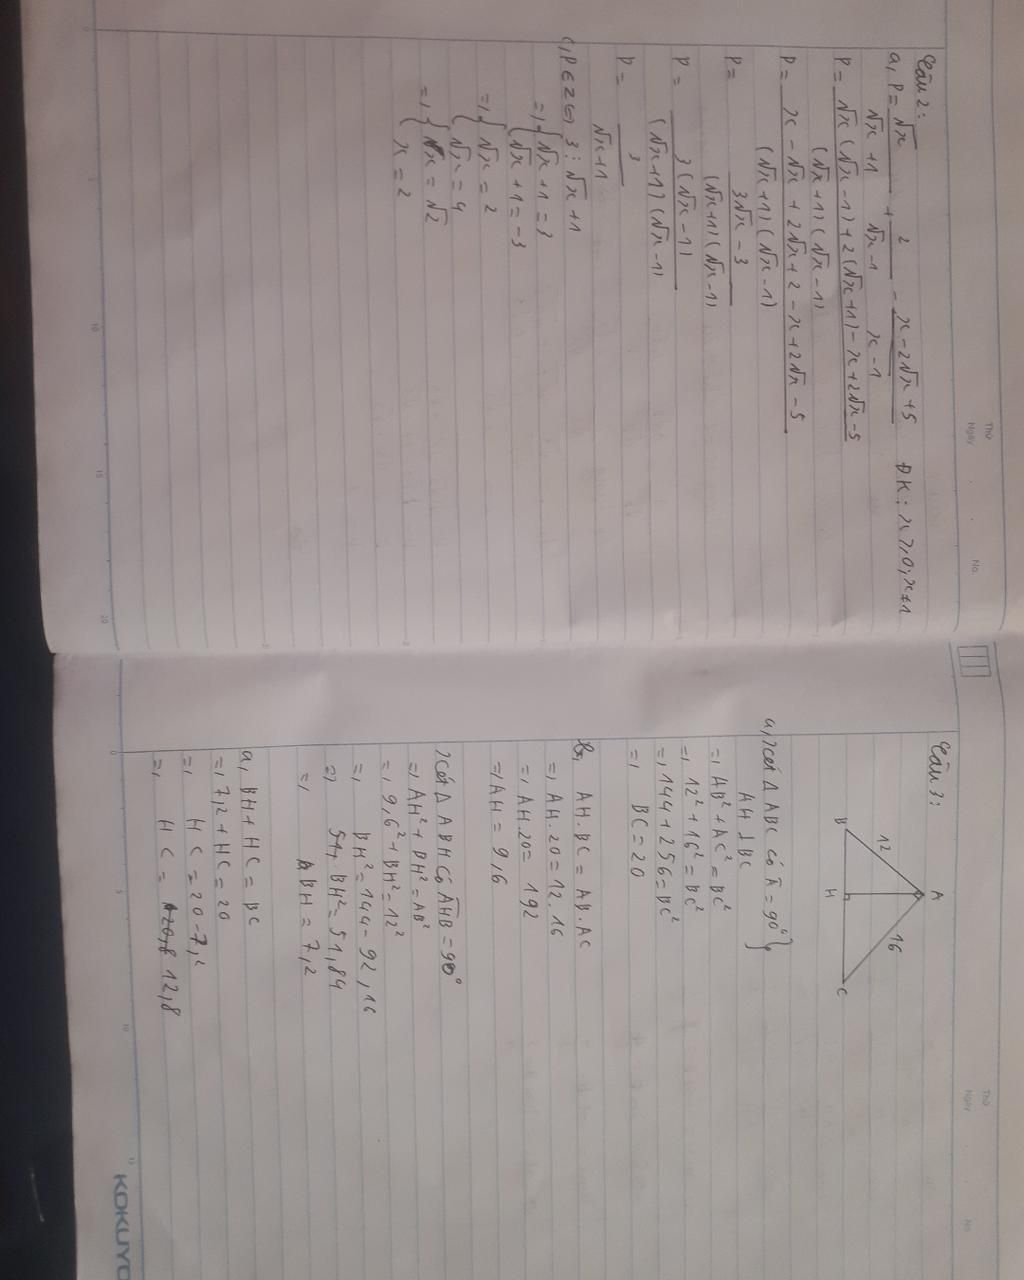 Thứ
Ngày
No.
Câu 2:
a, P = √x/(√x + 1) + 2/(√x - 1) - (x - 2√x + 5)/(x - 1) ĐK: x ⩾ 0; x ≠ 1
P = (√x(√x - 1) + 2(√x + 1) - x + 2√x - 5)/((√x + 1)(√x - 1))
P = (x - √x + 2√x + 2 - x + 2√x - 5)/((√x + 1)(√x - 1))
P = (3√x - 3)/((√x + 1)(√x - 1))
P = 3(√x - 1)/((√x + 1)(√x - 1))
P = 3/(√x + 1)
c, P ∈ Z ⇔ 3 ⋮ √x + 1
=> { √x + 1 = 3
{ √x + 1 = -3
=> { √x = 2
{ √x = 4
=> { √x = √2
{ x = 2
0
5
10
15
20
Thứ
Ngày
No
Câu 3:
A
12
16
B
H
C
a, xét Δ ABC có Â = 90° }
AH ⊥ BC
=> AB² + AC² = BC²
=> 12² + 16² = BC²
=> 144 + 256 = BC²
=> BC = 20
b, AH.BC = AB.AC
=> AH.20 = 12.16
=> AH.20 = 192
=> AH = 9,6
xét Δ ABH có AHB = 90°
=> AH² + BH² = AB²
=> 9,6² + BH² = 12²
=> BH² = 144 - 92,16
=> BH² = 51,84
=> BH = 7,2
a, BH + HC = BC
=> 7,2 + HC = 20
=> HC = 20 - 7,2
=> HC = 12,8
0
5
10
15
KOKUYO